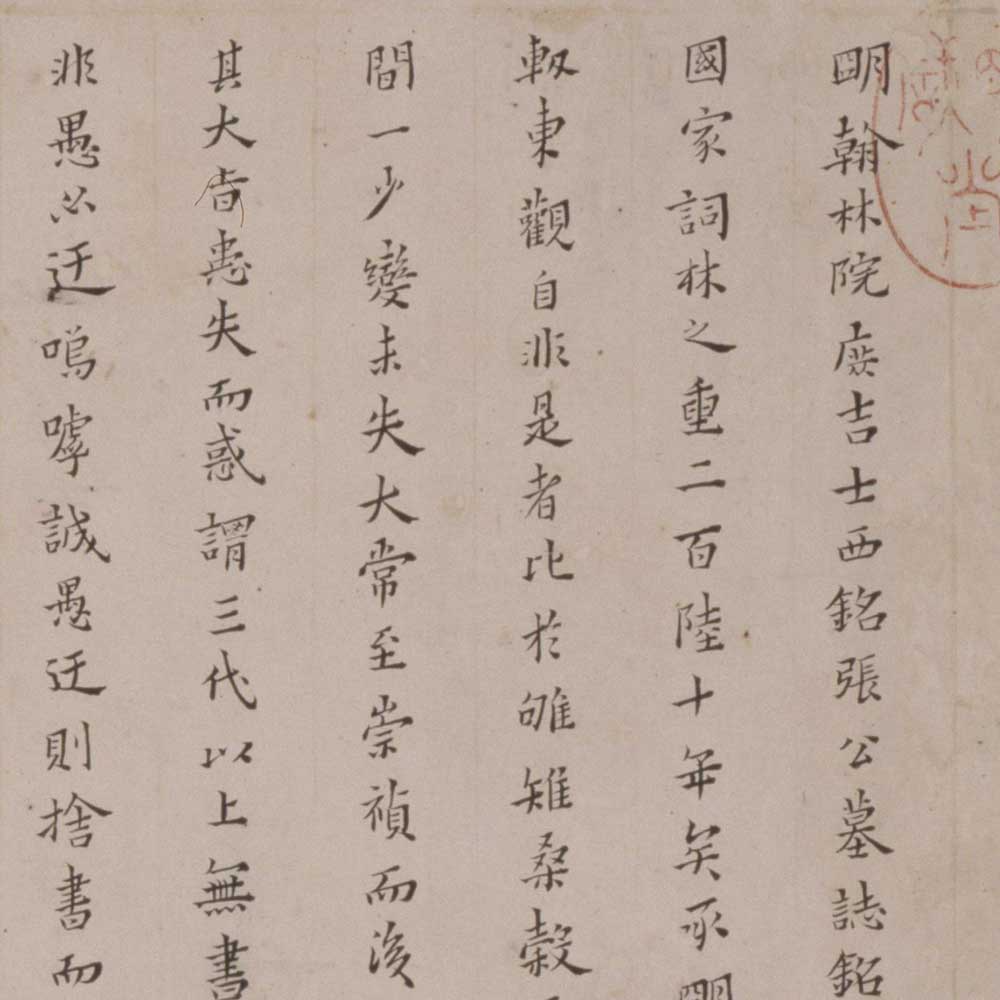 明翰林院庶吉士西銘張公墓誌銘
國家詞林之重二百陸十年矣承明
軔東觀自非是者比於雊雉桑穀
間一少變未失大常至崇禎而後
其大者患失而惑謂三代以上無書
非愚必迂嗚嘑誠愚迂則捨書而